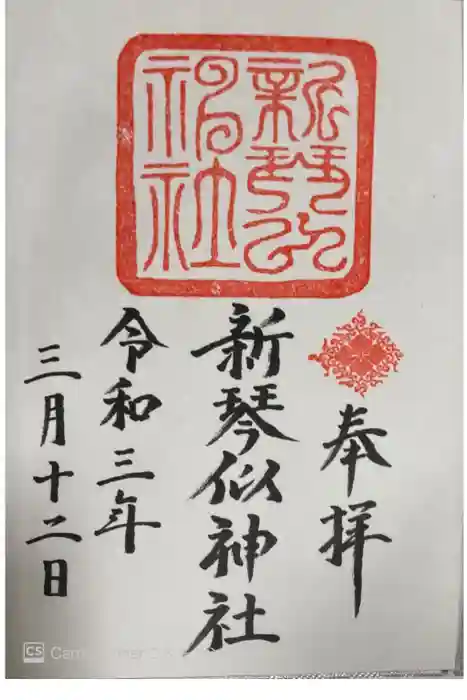 奉拝
新琴似神社
令和三年
三月十二日
新琴似
神社
CS